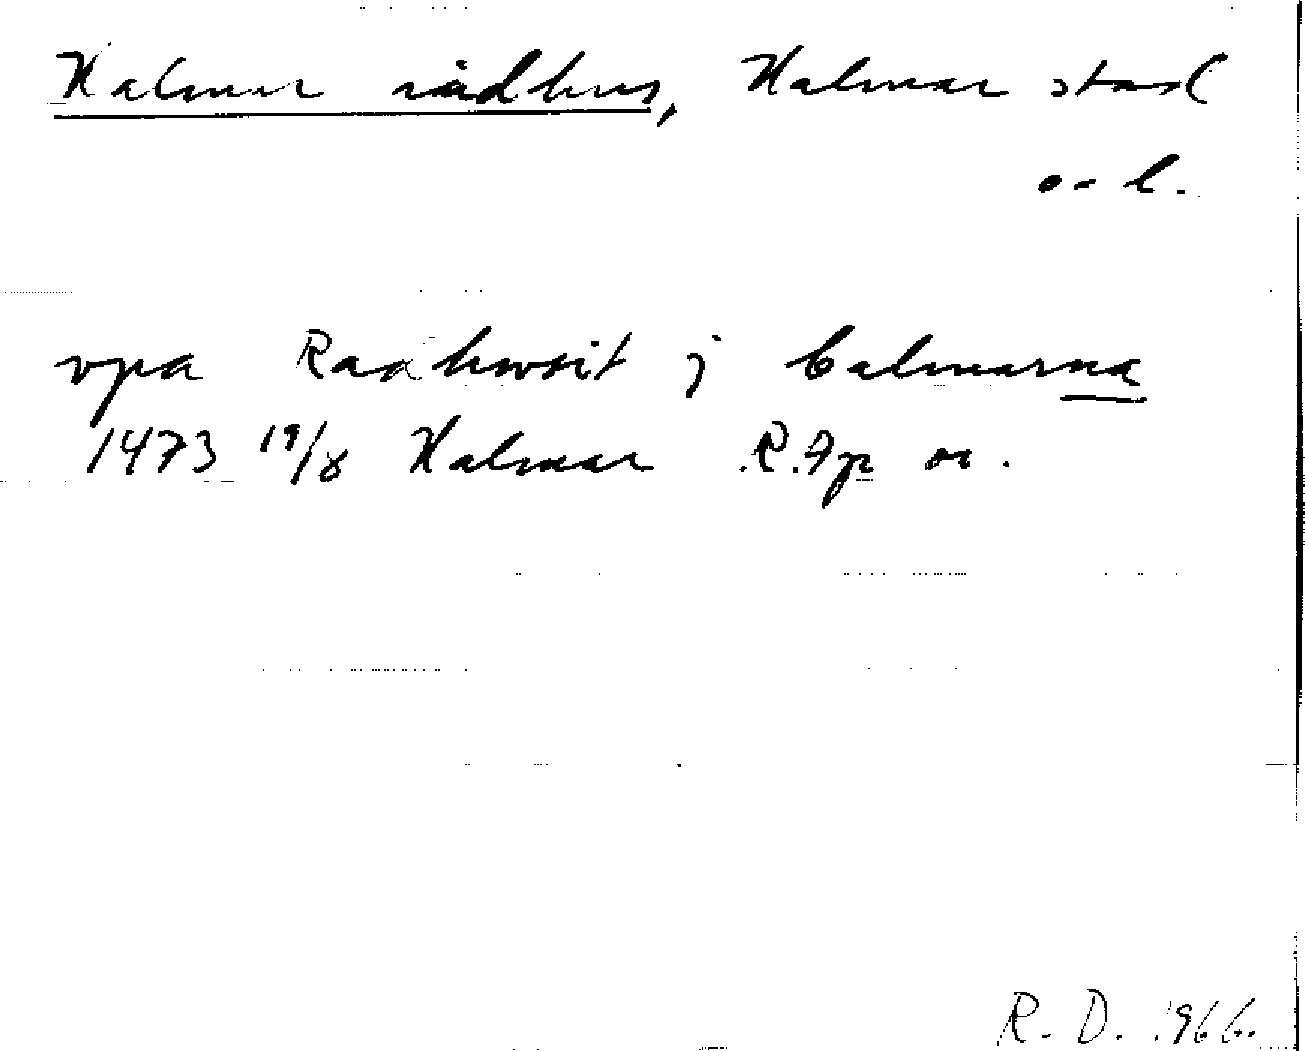 Kalmar rådhus, Kalmar stad
o. l.
vpa Raahwsit j Calmarna
1473 19/8 Kalmar R.Ap or.
R. D. 1966.